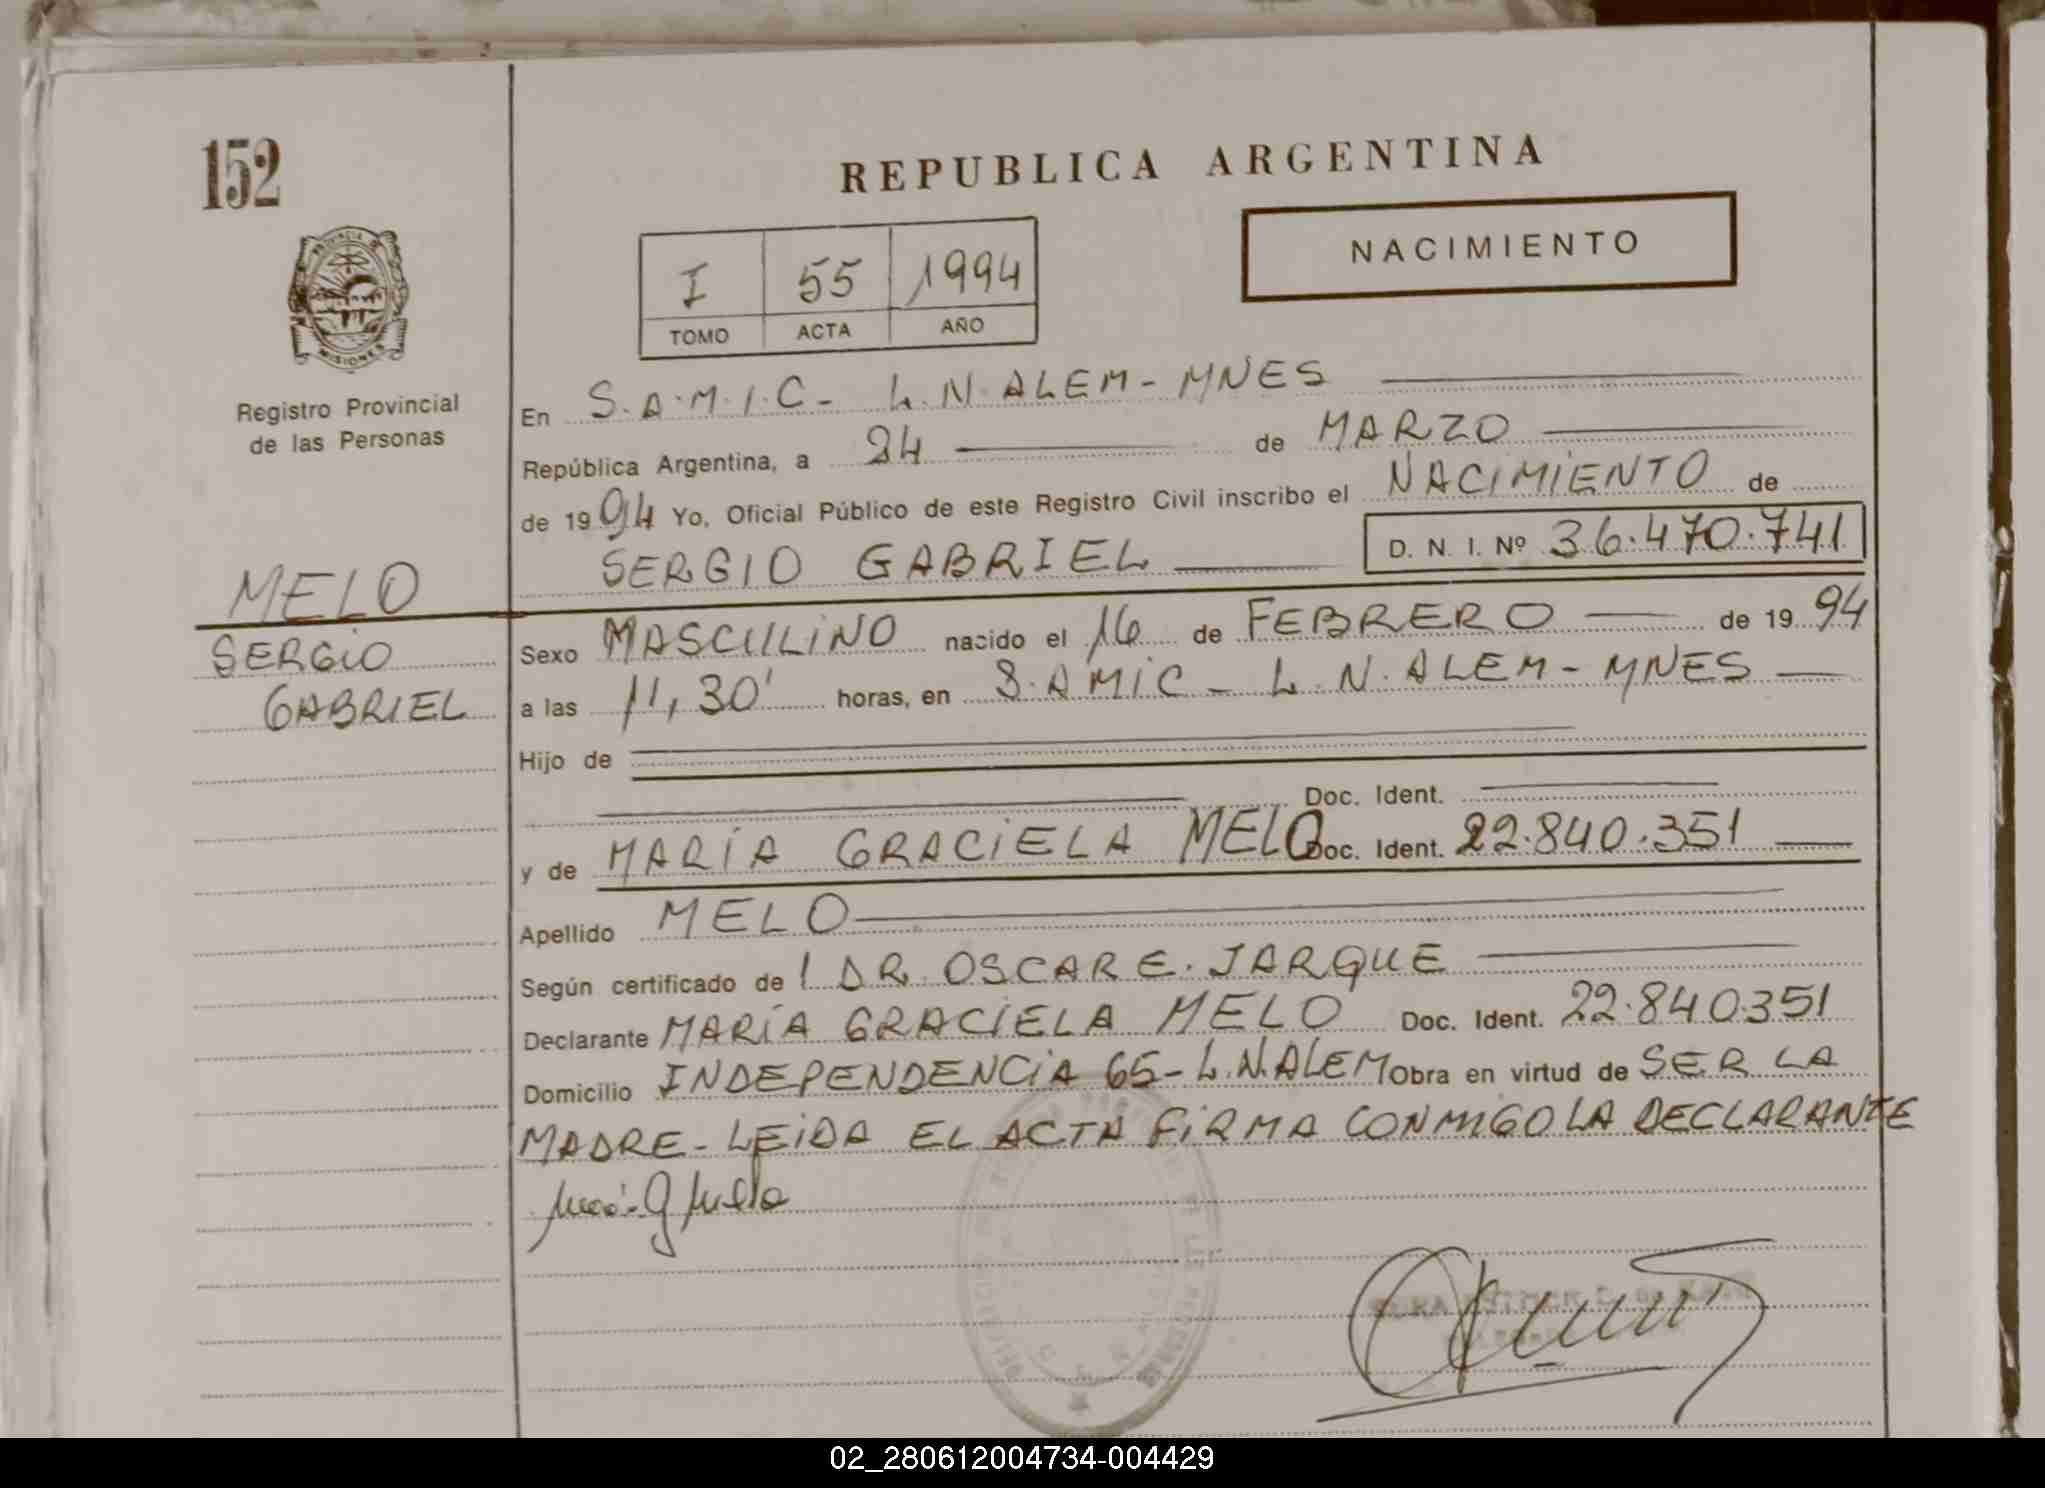 152
REPUBLICA ARGENTINA
NACIMIENTO
I 55 1994
TOMO ACTA AÑO
PROVINCIA DE
MISIONES
Registro Provincial
de las Personas
MELO
SERGIO
GABRIEL
En S.A.M.I.C- L.N.ALEM-MNES
República Argentina, a 24 de MARZO
de 1994 Yo, Oficial Público de este Registro Civil inscribo el NACIMIENTO de
SERGIO GABRIEL D. N. I. Nº 36.470.741
Sexo MASCULINO nacido el 16 de FEBRERO de 1994
a las 11,30' horas, en S.AMIC- L.N.ALEM-MNES
Hijo de
Doc. Ident.
y de MARÍA GRACIELA MELO Doc. Ident. 22.840.351
Apellido MELO
Según certificado de l DR. OSCAR E. JARQUE
Declarante MARÍA GRACIELA MELO Doc. Ident. 22.840.351
Domicilio INDEPENDENCIA 65-L.N.ALEM Obra en virtud de SER LA
MADRE-LEIDA EL ACTA FIRMA CONMIGO LA DECLARANTE
02_280612004734-004429